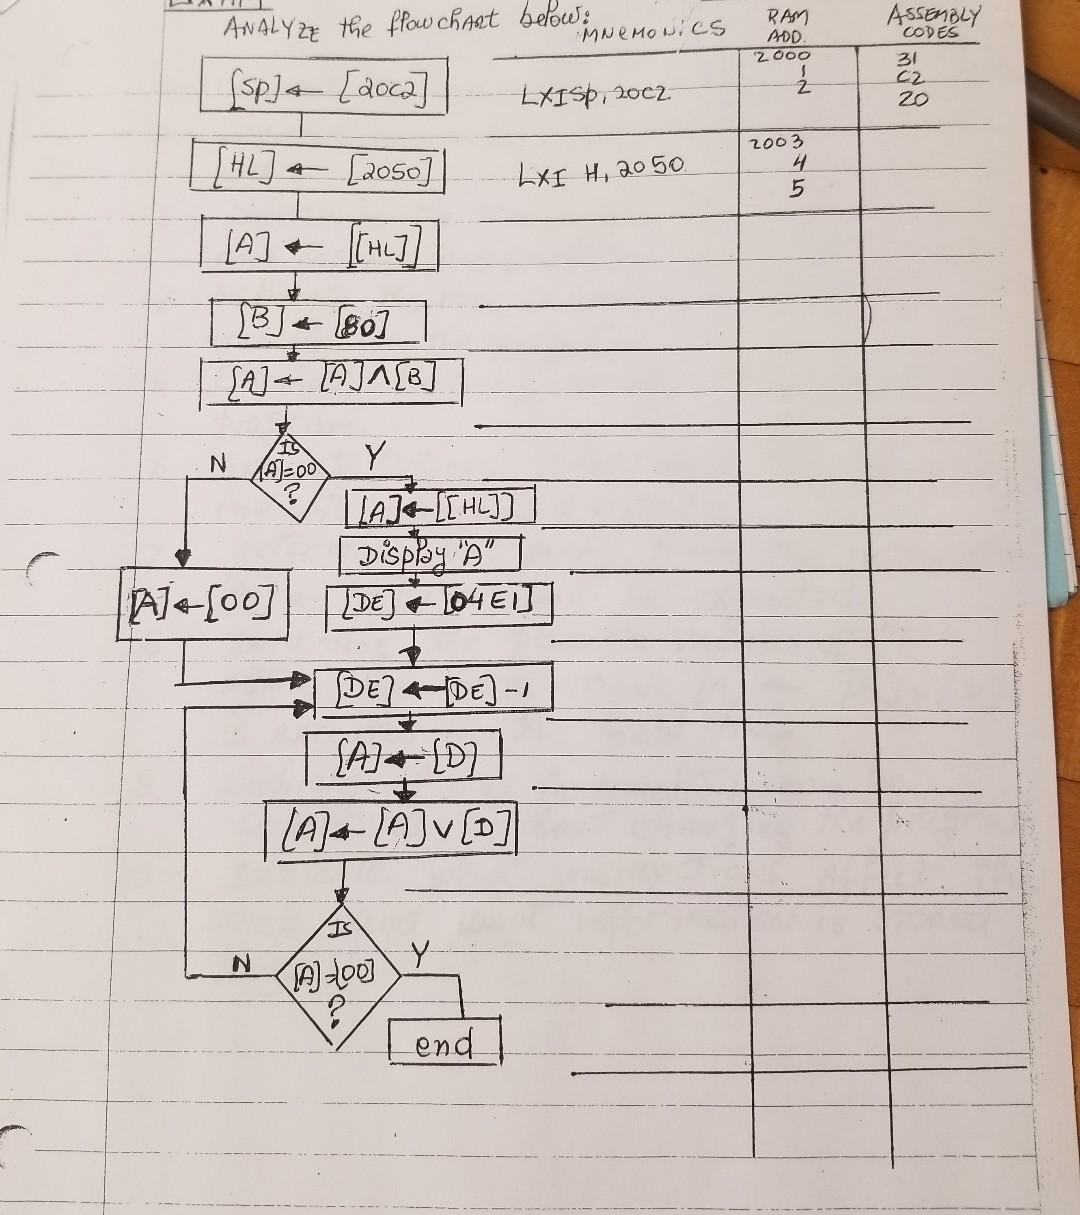 ANALYZE the flowchart below:
MNEMONICS
RAM ADD.
ASSEMBLY CODES
[SP] ← [20C2]
LXISP, 20C2
2000
1
2
31
C2
20
[HL] ← [2050]
LXI H, 2050
2003
4
5
[A] ← [[HL]]
[B] ← [80]
[A] ← [A] ∧ [B]
Is
[A]=00
?
N
Y
[A] ← [[HL]]
Display "A"
[A] ← [00]
[DE] ← [04E1]
[DE] ← [DE] -1
[A] ← [D]
[A] ← [A] ∨ [D]
Is
[A]=[00]
?
N
Y
end